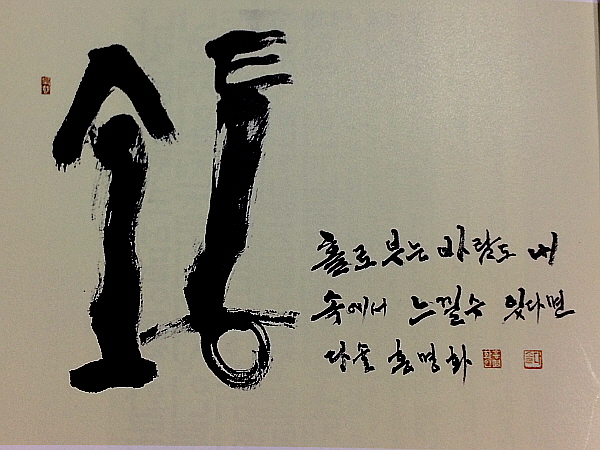 홀로 부는 바람도 내
속에서 느낄수 있다면
홍명화